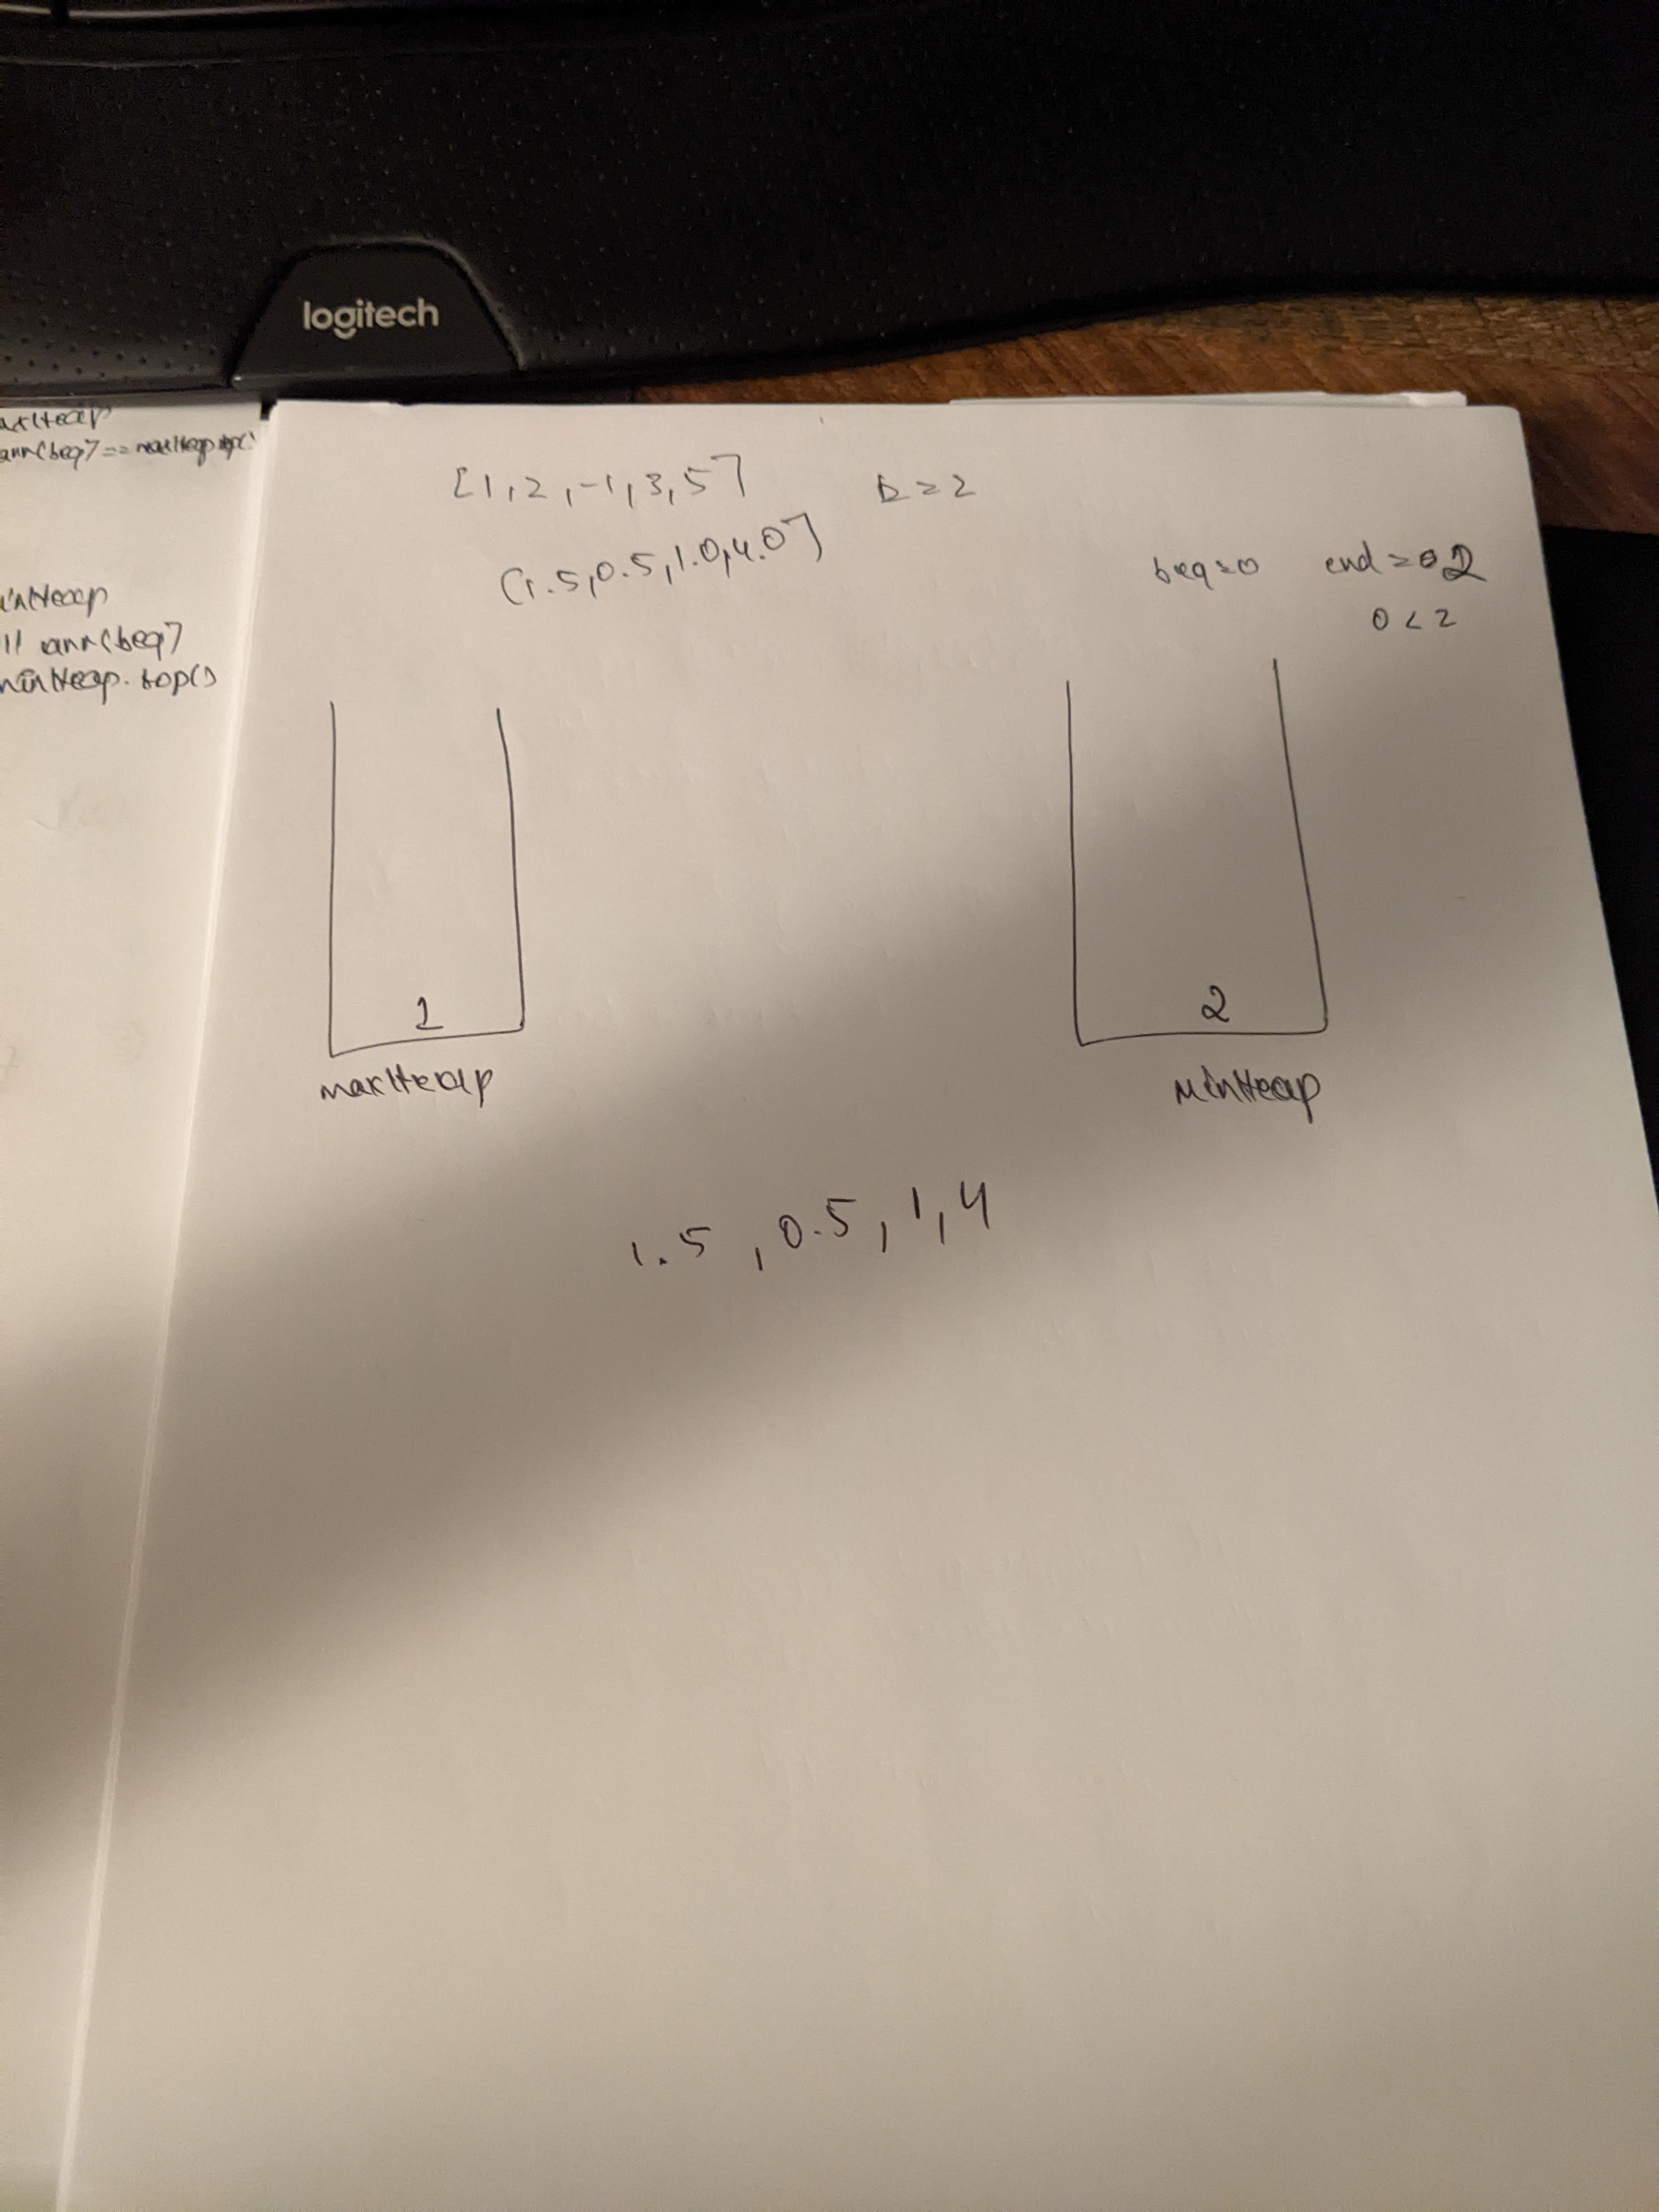 logitech
arr[beg] == maxHeap.top()
|| arr[beg]
minHeap.top()
[1, 2, -1, 3, 5] k = 2
[1.5, 0.5, 1.0, 4.0]
beg = 0 end = 0 2
0 < 2
1
2
maxHeap
minHeap
1.5, 0.5, 1, 4